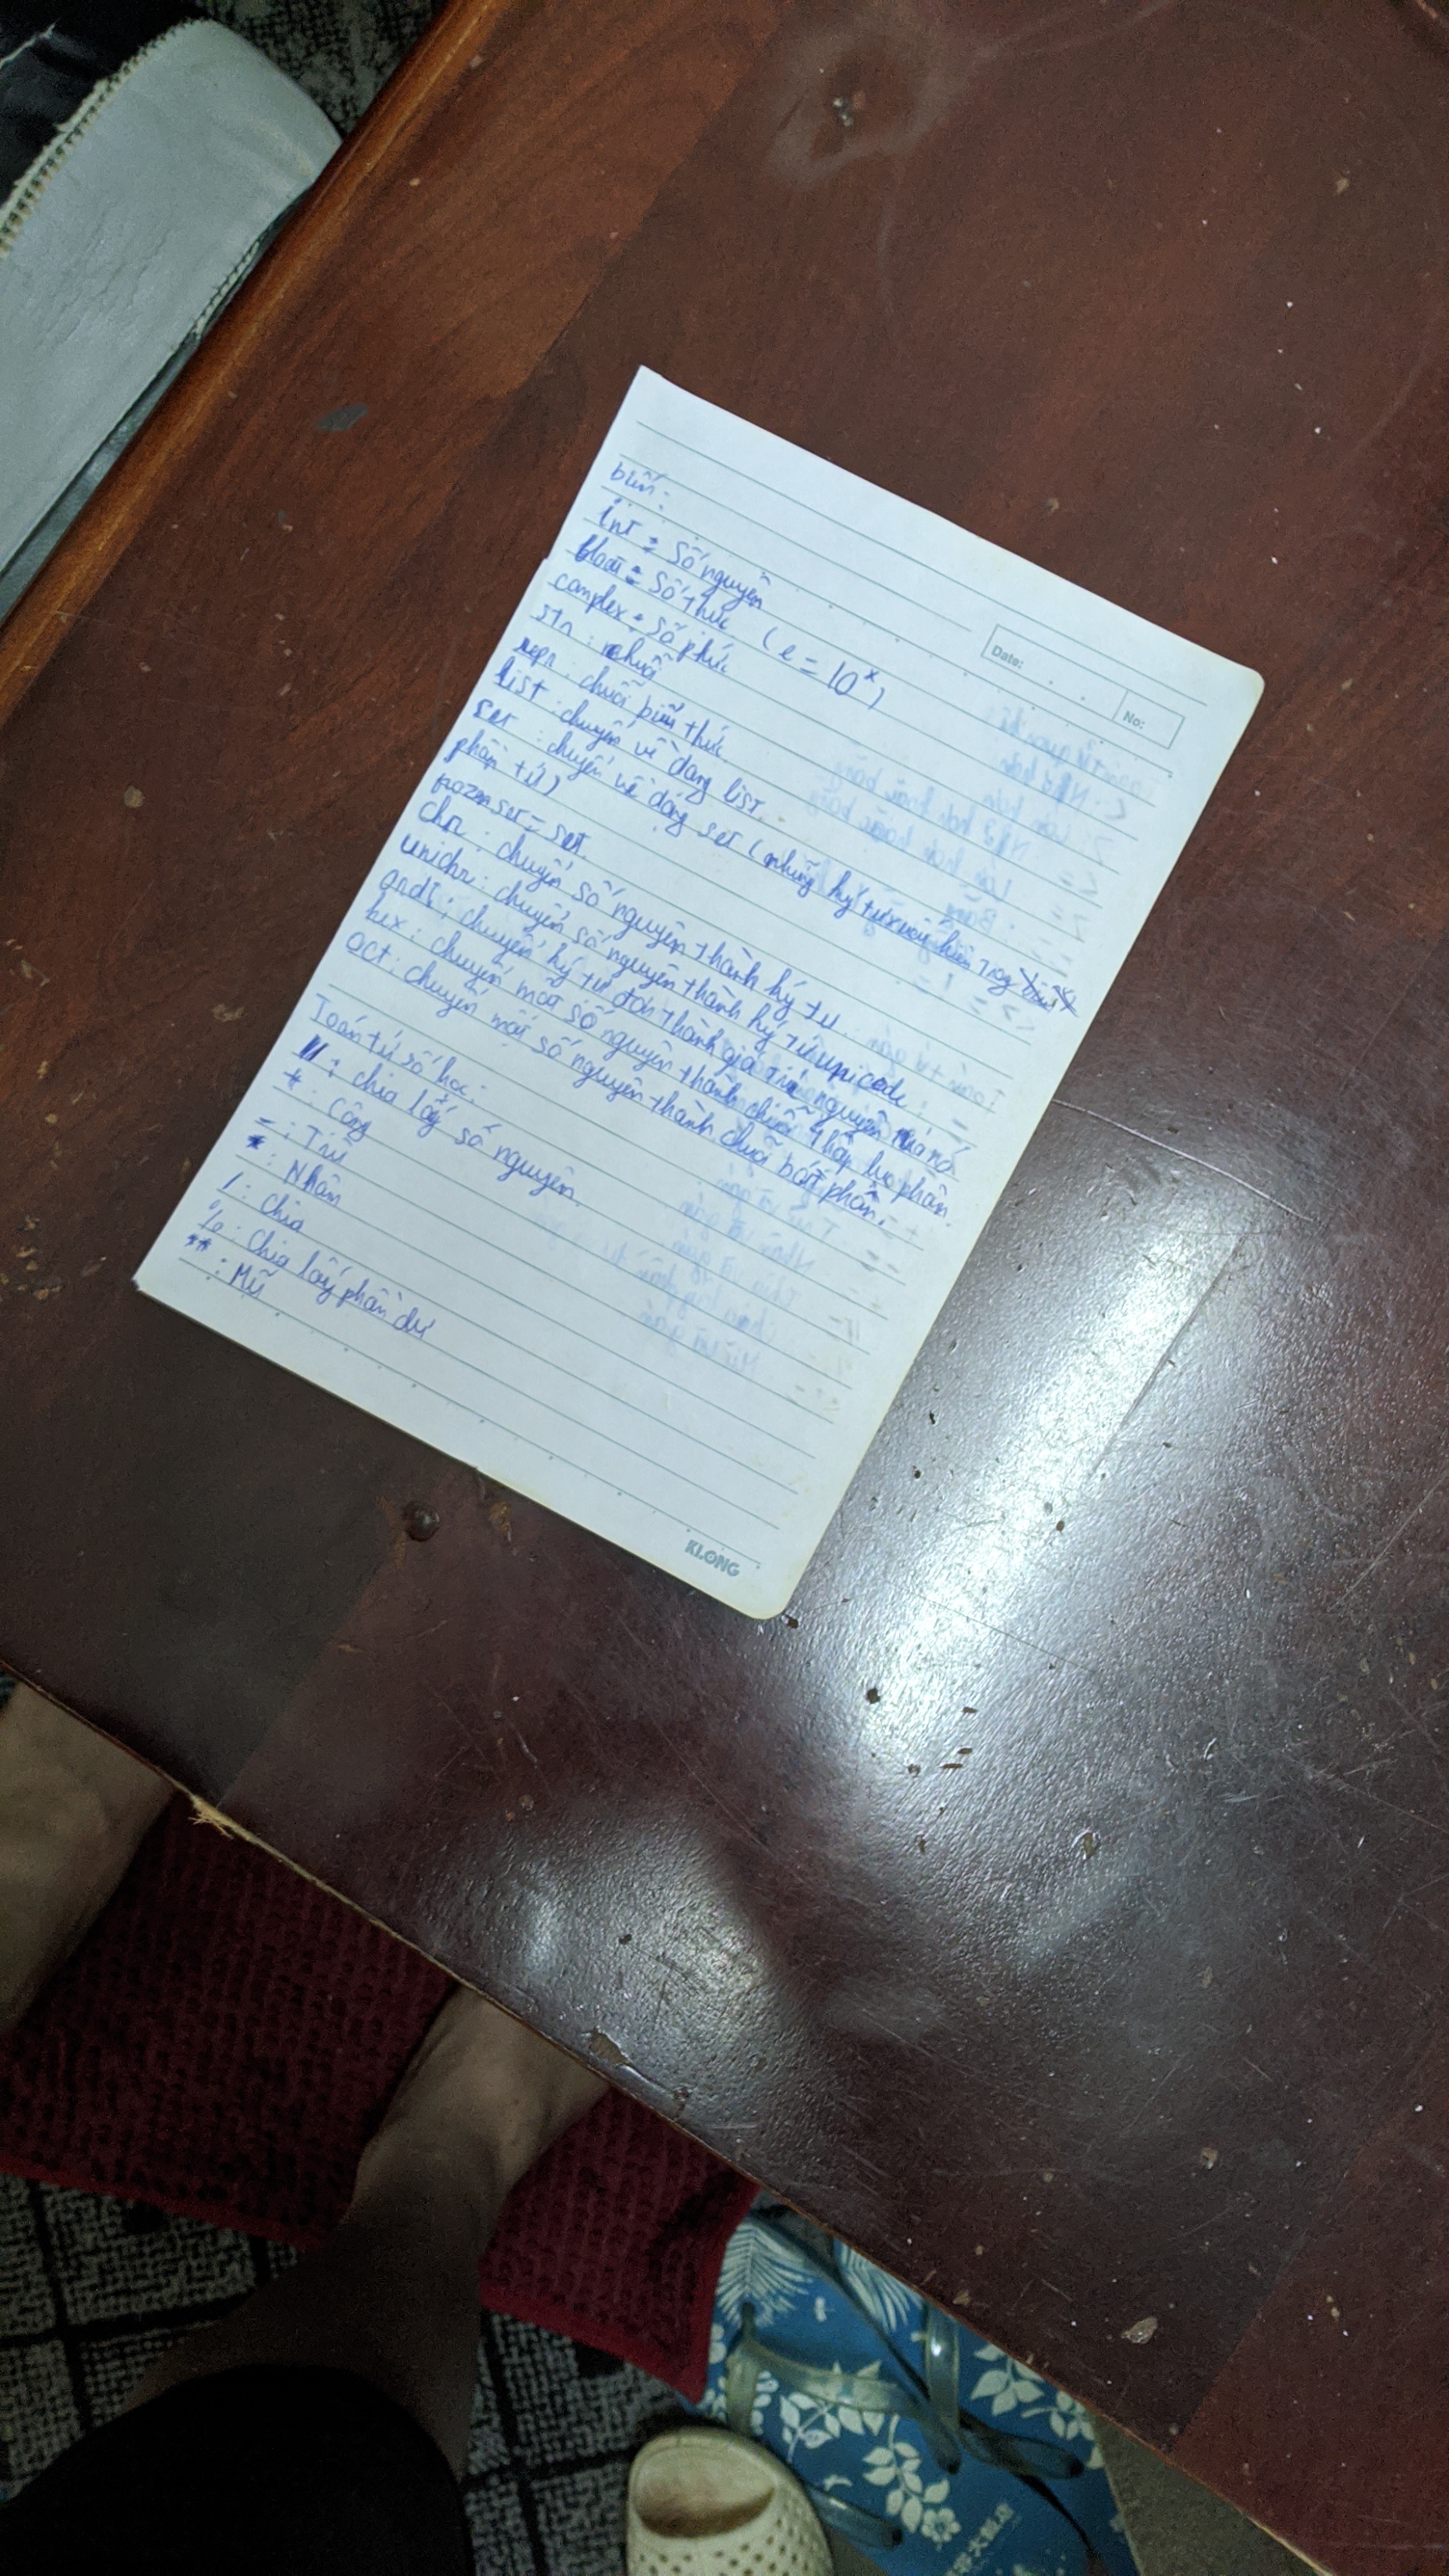 Date:
No:
biến:
int : Số nguyên
float : Số thực (e = 10^x)
complex : Số phức
str : chuỗi
repr : chuỗi biểu thức
list : chuyển về dạng list.
set : chuyển về dạng set (những ký tự xuất hiện trong
phần tử)
frozen set = set.
Chr : chuyển số nguyên thành ký tự
unichr : chuyển số nguyên thành ký tự unicode
ord : chuyển ký tự đơn thành giá trị nguyên của nó
hex : chuyển một số nguyên thành chuỗi thập lục phân
oct : chuyển một số nguyên thành chuỗi bát phân.
Toán tử số học :
// : chia lấy số nguyên
+ : Cộng
- : Trừ
* : Nhân
/ : Chia
% : Chia lấy phần dư
** : Mũ
KLONG